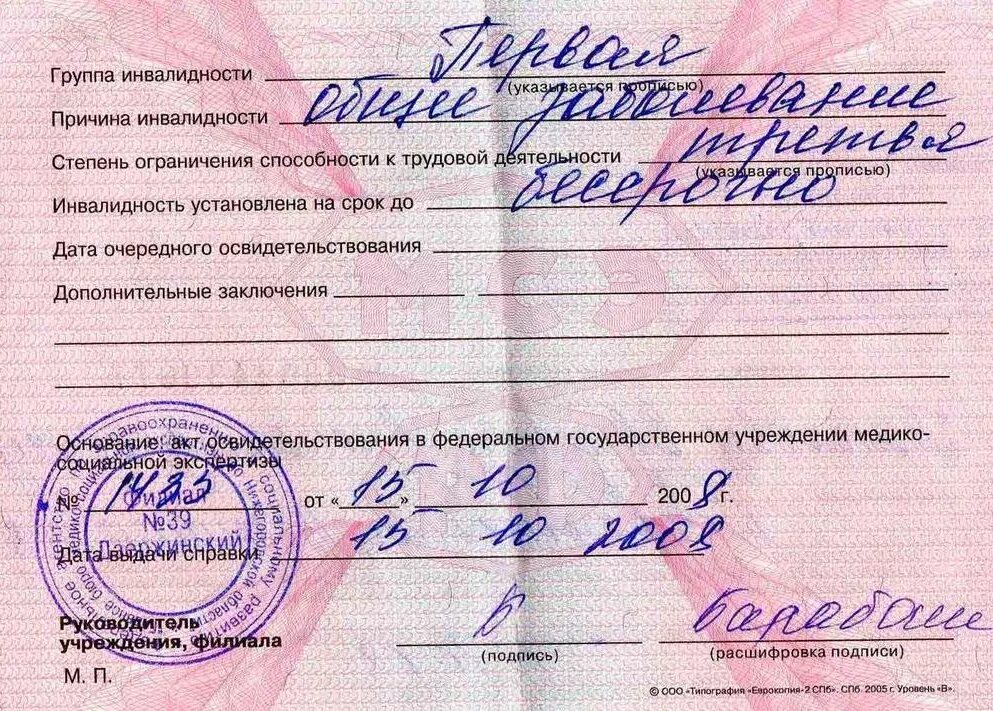 Группа инвалидности Первая
(указывается прописью)
Причина инвалидности общее заболевание
Степень ограничения способности к трудовой деятельности третья
(указывается прописью)
Инвалидность установлена на срок до бессрочно
Дата очередного освидетельствования
Дополнительные заключения
МСЭ
Основание: акт освидетельствования в федеральном государственном учреждении медико-
социальной экспертизы
№ 1433 от «15» 10 2008 г.
Дата выдачи справки 15 10 2008
филиал
№39
Дзержинский
Руководитель
учреждения, филиала
(подпись)
(расшифровка подписи)
М. П.
© ООО «Типография «Еврокопия-2 СПб». СПб. 2005 г. Уровень «В».